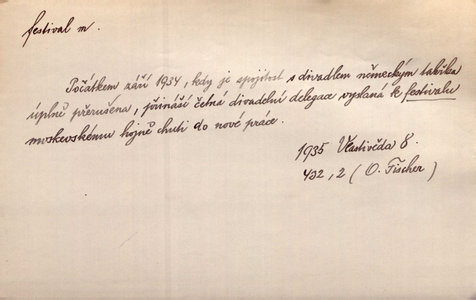 festival m.
Počátkem září 1934, kdy je spojitost s divadlem německým takřka
úplně přerušena, přináší četná divadelní delegace vyslaná k festivalu
moskevskému hojně chuti do nové práce.
1935 Vlastivěda 8.
432, 2 (O. Fischer)